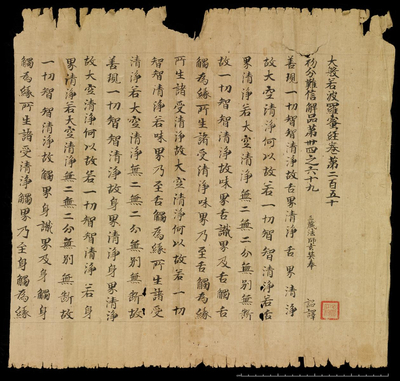 大般若波羅蜜多經卷第二百五十
初分難信解品第卅四之六十九
三藏法師玄奘奉 詔譯
善現一切智智清淨故舌界清淨舌界清淨
故大空清淨何以故若一切智智清淨若舌
界清淨若大空清淨無二無二分無別無斷
故一切智智清淨故味界舌識界及舌觸舌
觸為緣所生諸受清淨味界乃至舌觸為緣
所生諸受清淨故大空清淨何以故若一切
智智清淨若味界乃至舌觸為緣所生諸受
清淨若大空清淨無二無二分無別無斷故
善現一切智智清淨故身界清淨身界清淨
故大空清淨何以故若一切智智清淨若身
界清淨若大空清淨無二無二分無別無斷故
一切智智清淨故觸界身識界及身觸身
觸為緣所生諸受清淨觸界乃至身觸為緣